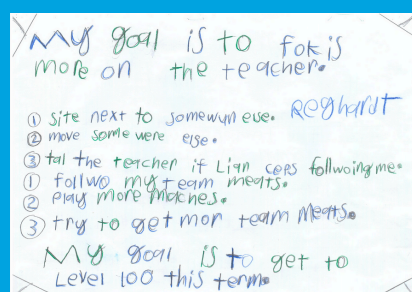 My goal is to fokis
more on the teacher.
Reghardt
① site next to somewun else.
② move some were else.
③ tal the teacher if Lian ceps follwoing me.
① follwo my team meats.
② Play more Maches.
③ try to get mor team Meats.
My goal is to get to
Level 100 this term.